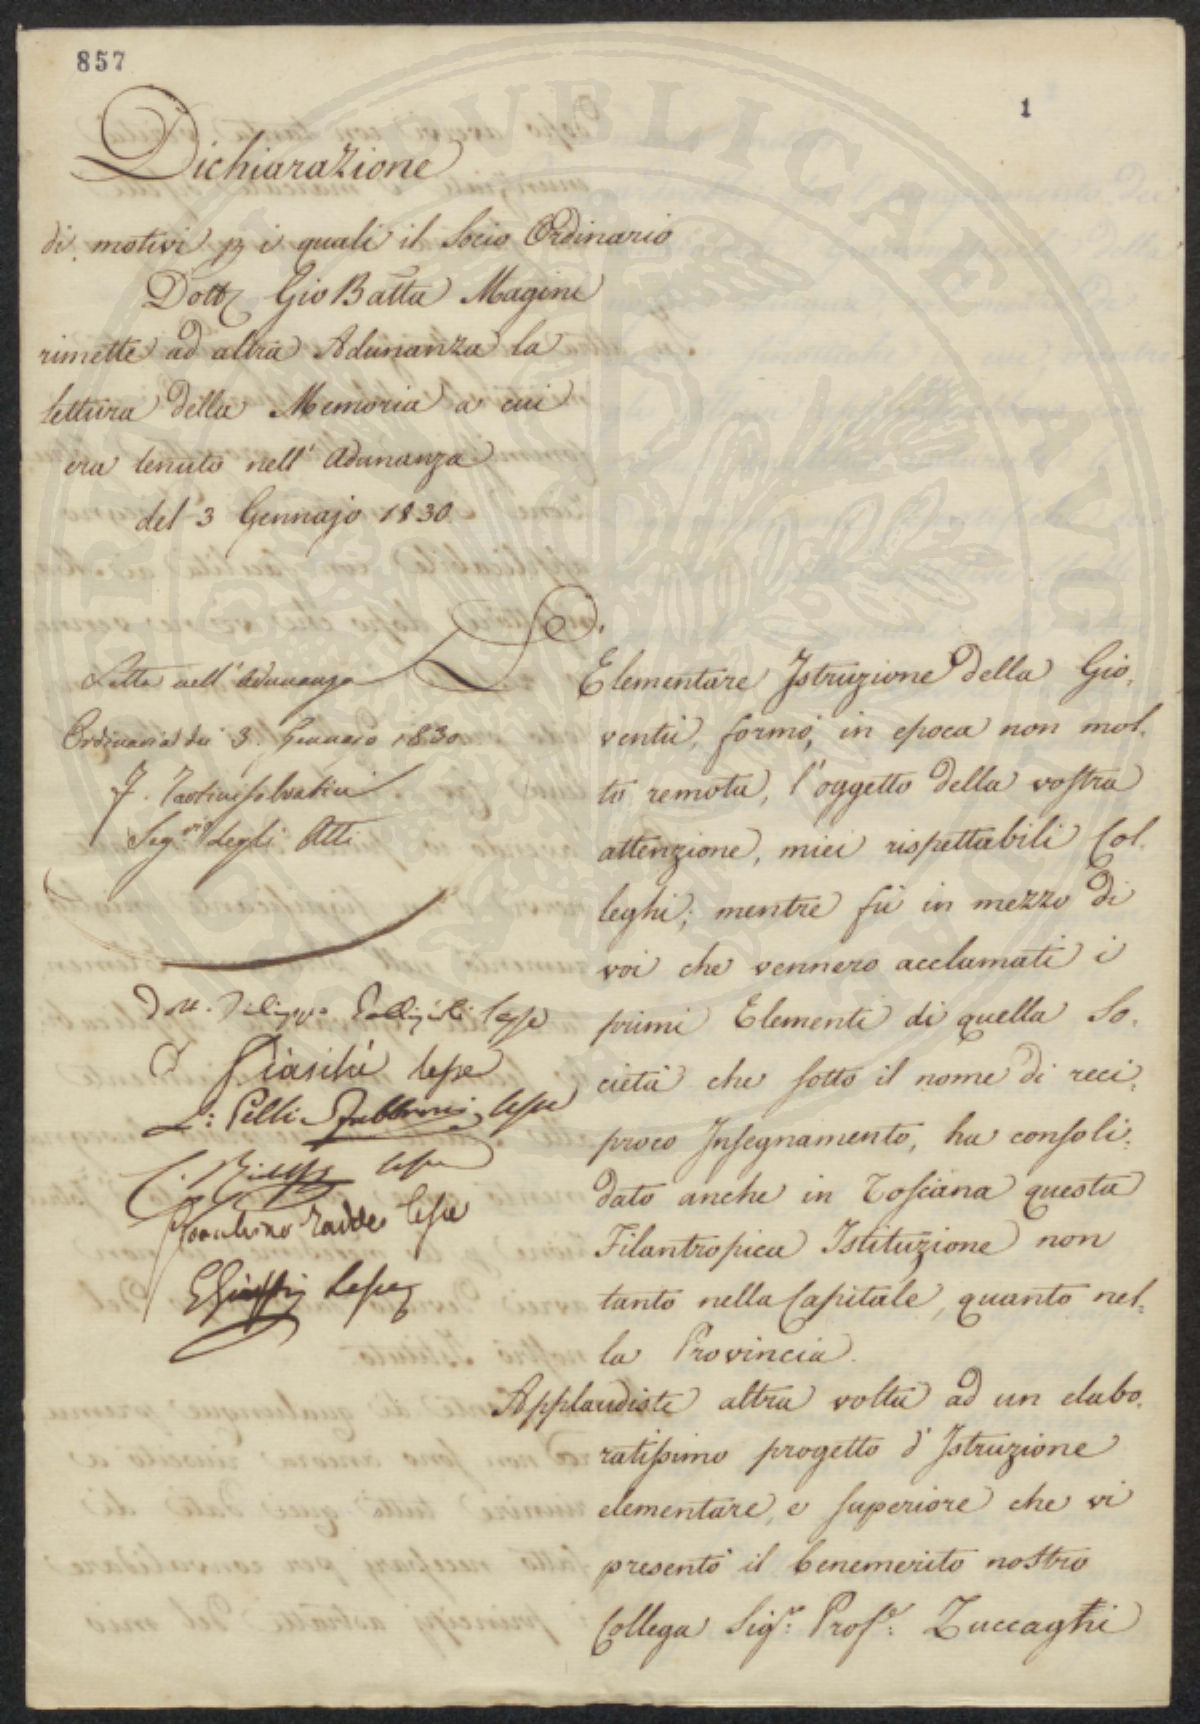 857
1
Dichiarazione
di motivi p i quali il Socio Ordinario
Dott Gio Batta Magini
rimette ad altra Adunanza la
lettura della Memoria a cui
era tenuto nell' Adunanza
del 3 Gennajo 1830
Letta nell' Adunanza
Ordinaria dei 3. Gennaro 1830
Seg.rio degli Atti
Dott. Filippo lesse
lesse
L: Pelli Fabbroni lesse
lesse
Taddei lesse
lesse
La
Elementare Istruzione della Gio,
ventù, formò, in epoca non mol,
to remota, l'oggetto della vostra
attenzione, miei rispettabili Col,
leghi; mentre fù in mezzo di
voi che vennero acclamati i
primi Elementi di quella So,
cietà che sotto il nome di reci,
proco Insegnamento, ha consoli,
dato anche in Toscana questa
Filantropica Istituzione non
tanto nella Capitale, quanto nel,
la Provincia.
Applaudiste altra volta ad un elabo,
ratissimo progetto d'Istruzione
elementare, e superiore che vi
presentò il benemerito nostro
Collega Sig.r Prof.r Zuccagni